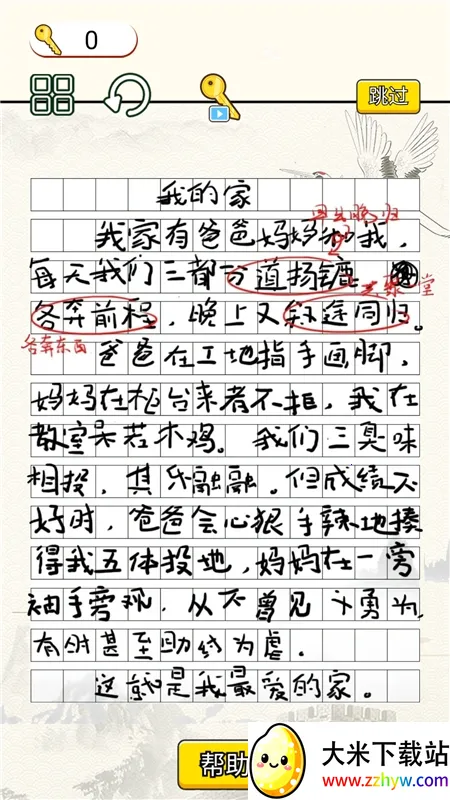 0
跳过
我的家
早出晚归
我家有爸爸妈妈和我，
每天我们三都分道扬镳，
共聚一堂
各奔前程，晚上又殊途同归。
各奔东西
爸爸在工地指手画脚，
妈妈在柜台来者不拒，我在
教室呆若木鸡。我们三臭味
相投，其乐融融。但成绩不
好时，爸爸会心狠手辣地揍
得我五体投地，妈妈在一旁
袖手旁观，从不曾见义勇为，
有时甚至助纣为虐。
这就是我最爱的家。
帮助
大米下载站
www.zzhyw.com